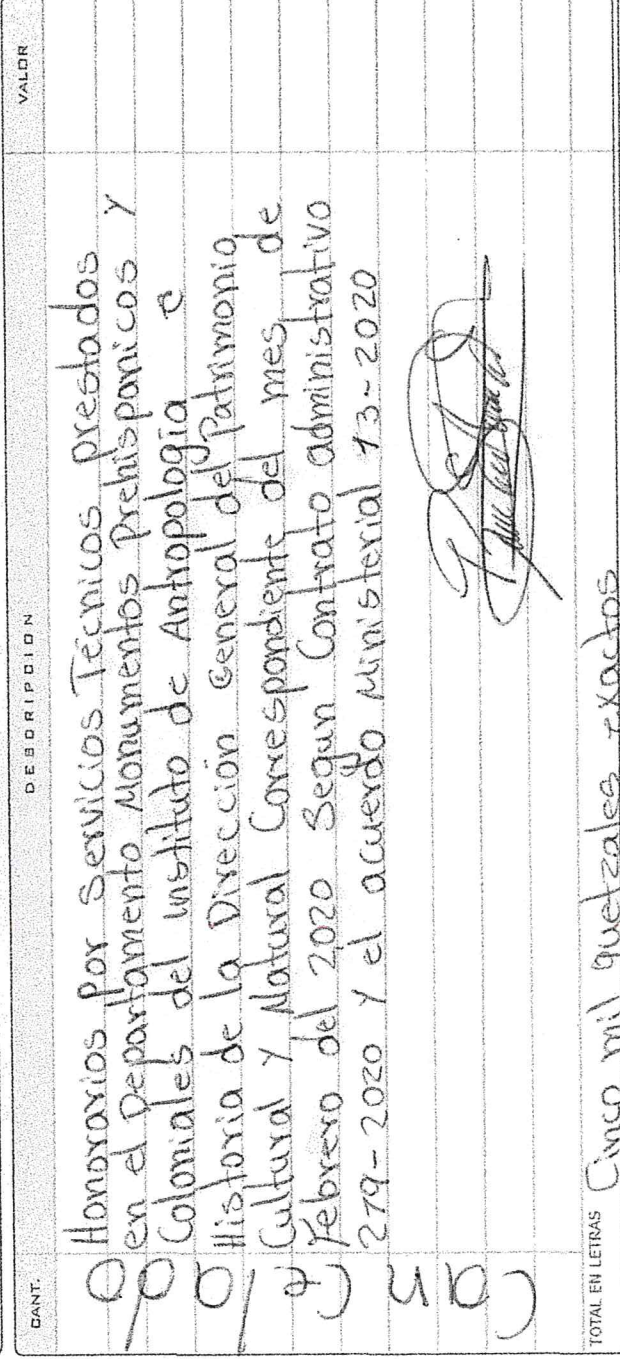 CANT. DESCRIPCION VALOR
Honorarios Por Servicios Tecnicos prestados
en el Departamento Monumentos Prehispanicos y
Coloniales del instituto de Antropologia e
Historia de la Dirección General del Patrimonio
Cultural y Natural Correspondiente del mes de
Febrero del 2020 Segun Contrato administrativo
279-2020 y el acuerdo Ministerial 13-2020
Cancelado
TOTAL EN LETRAS Cinco mil quetzales exactos